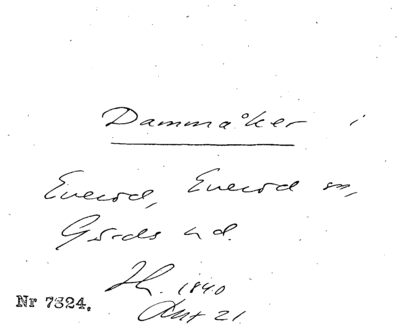 Dammåker i
Everöd, Everöd sn,
Gärds hd.
1840
Nr 7324.
21